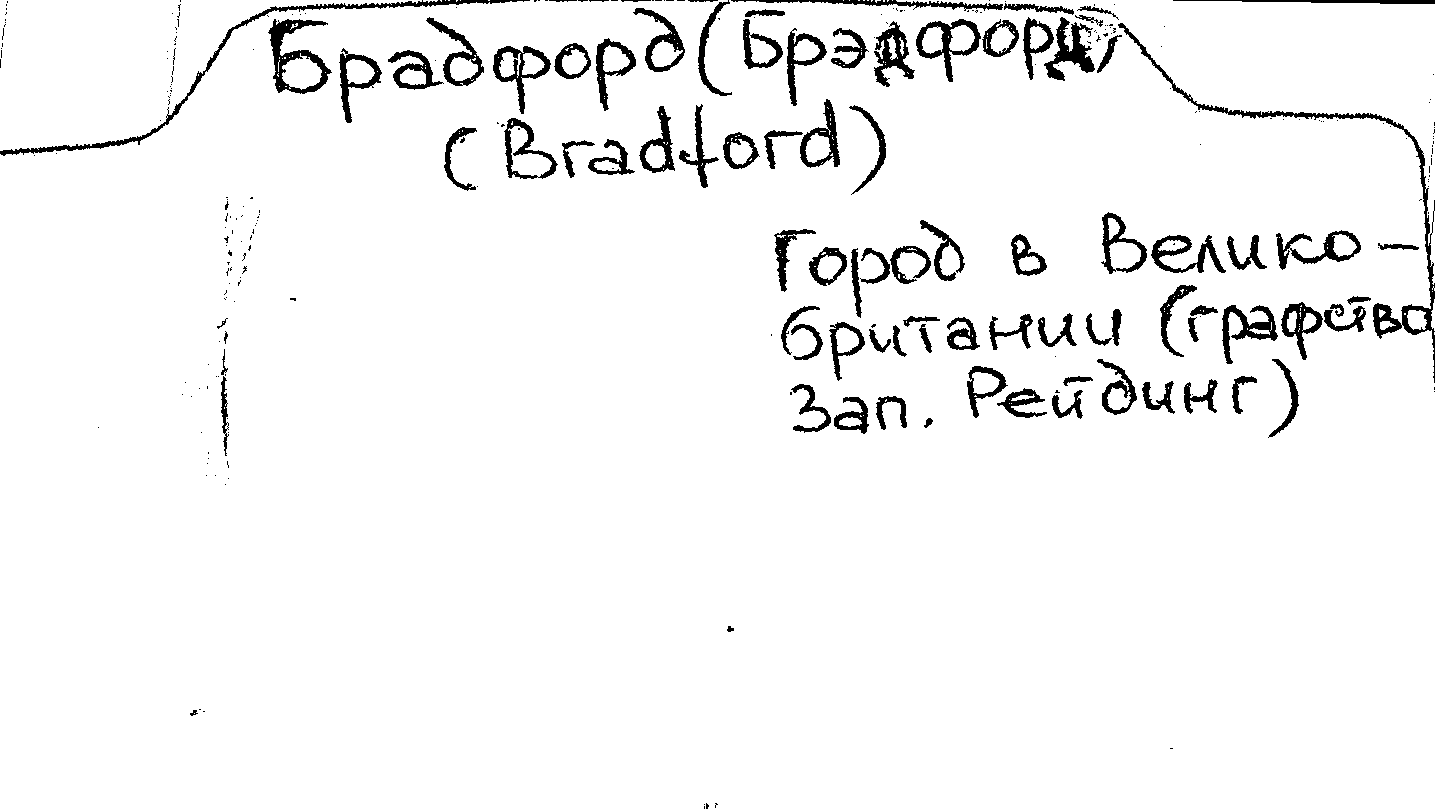 Брадфорд (Брэдфорд)
(Bradford)
Город в Велико-
британии (графство
Зап. Рейдинг)